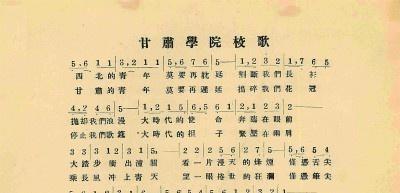 甘肅學院校歌
5,6 1 1 3,2 1 1 1 5,6 7 6 5 1,2 3 2 1,7 6 5
西北的青年 莫要再躭延 割斷我們長衫
甘肅的青年 莫要再遲延 搗碎我們花冠
4,2 4 6 5 — 1,2 1 5 6,5 6 1 6 2,1 2 3 —
拋却我們浪漫 大時代的使命 奔瀉在眼前
停止我們歌筵 大時代的担子 緊壓在兩肩
3 3 3 1 2 3 1 2 5 5
大踏步衝出潼關 看一片漫天的烽煙 僅憑舌尖
乘長風冲上青天 望一眼捲世的狂瀾 僅憑筆尖